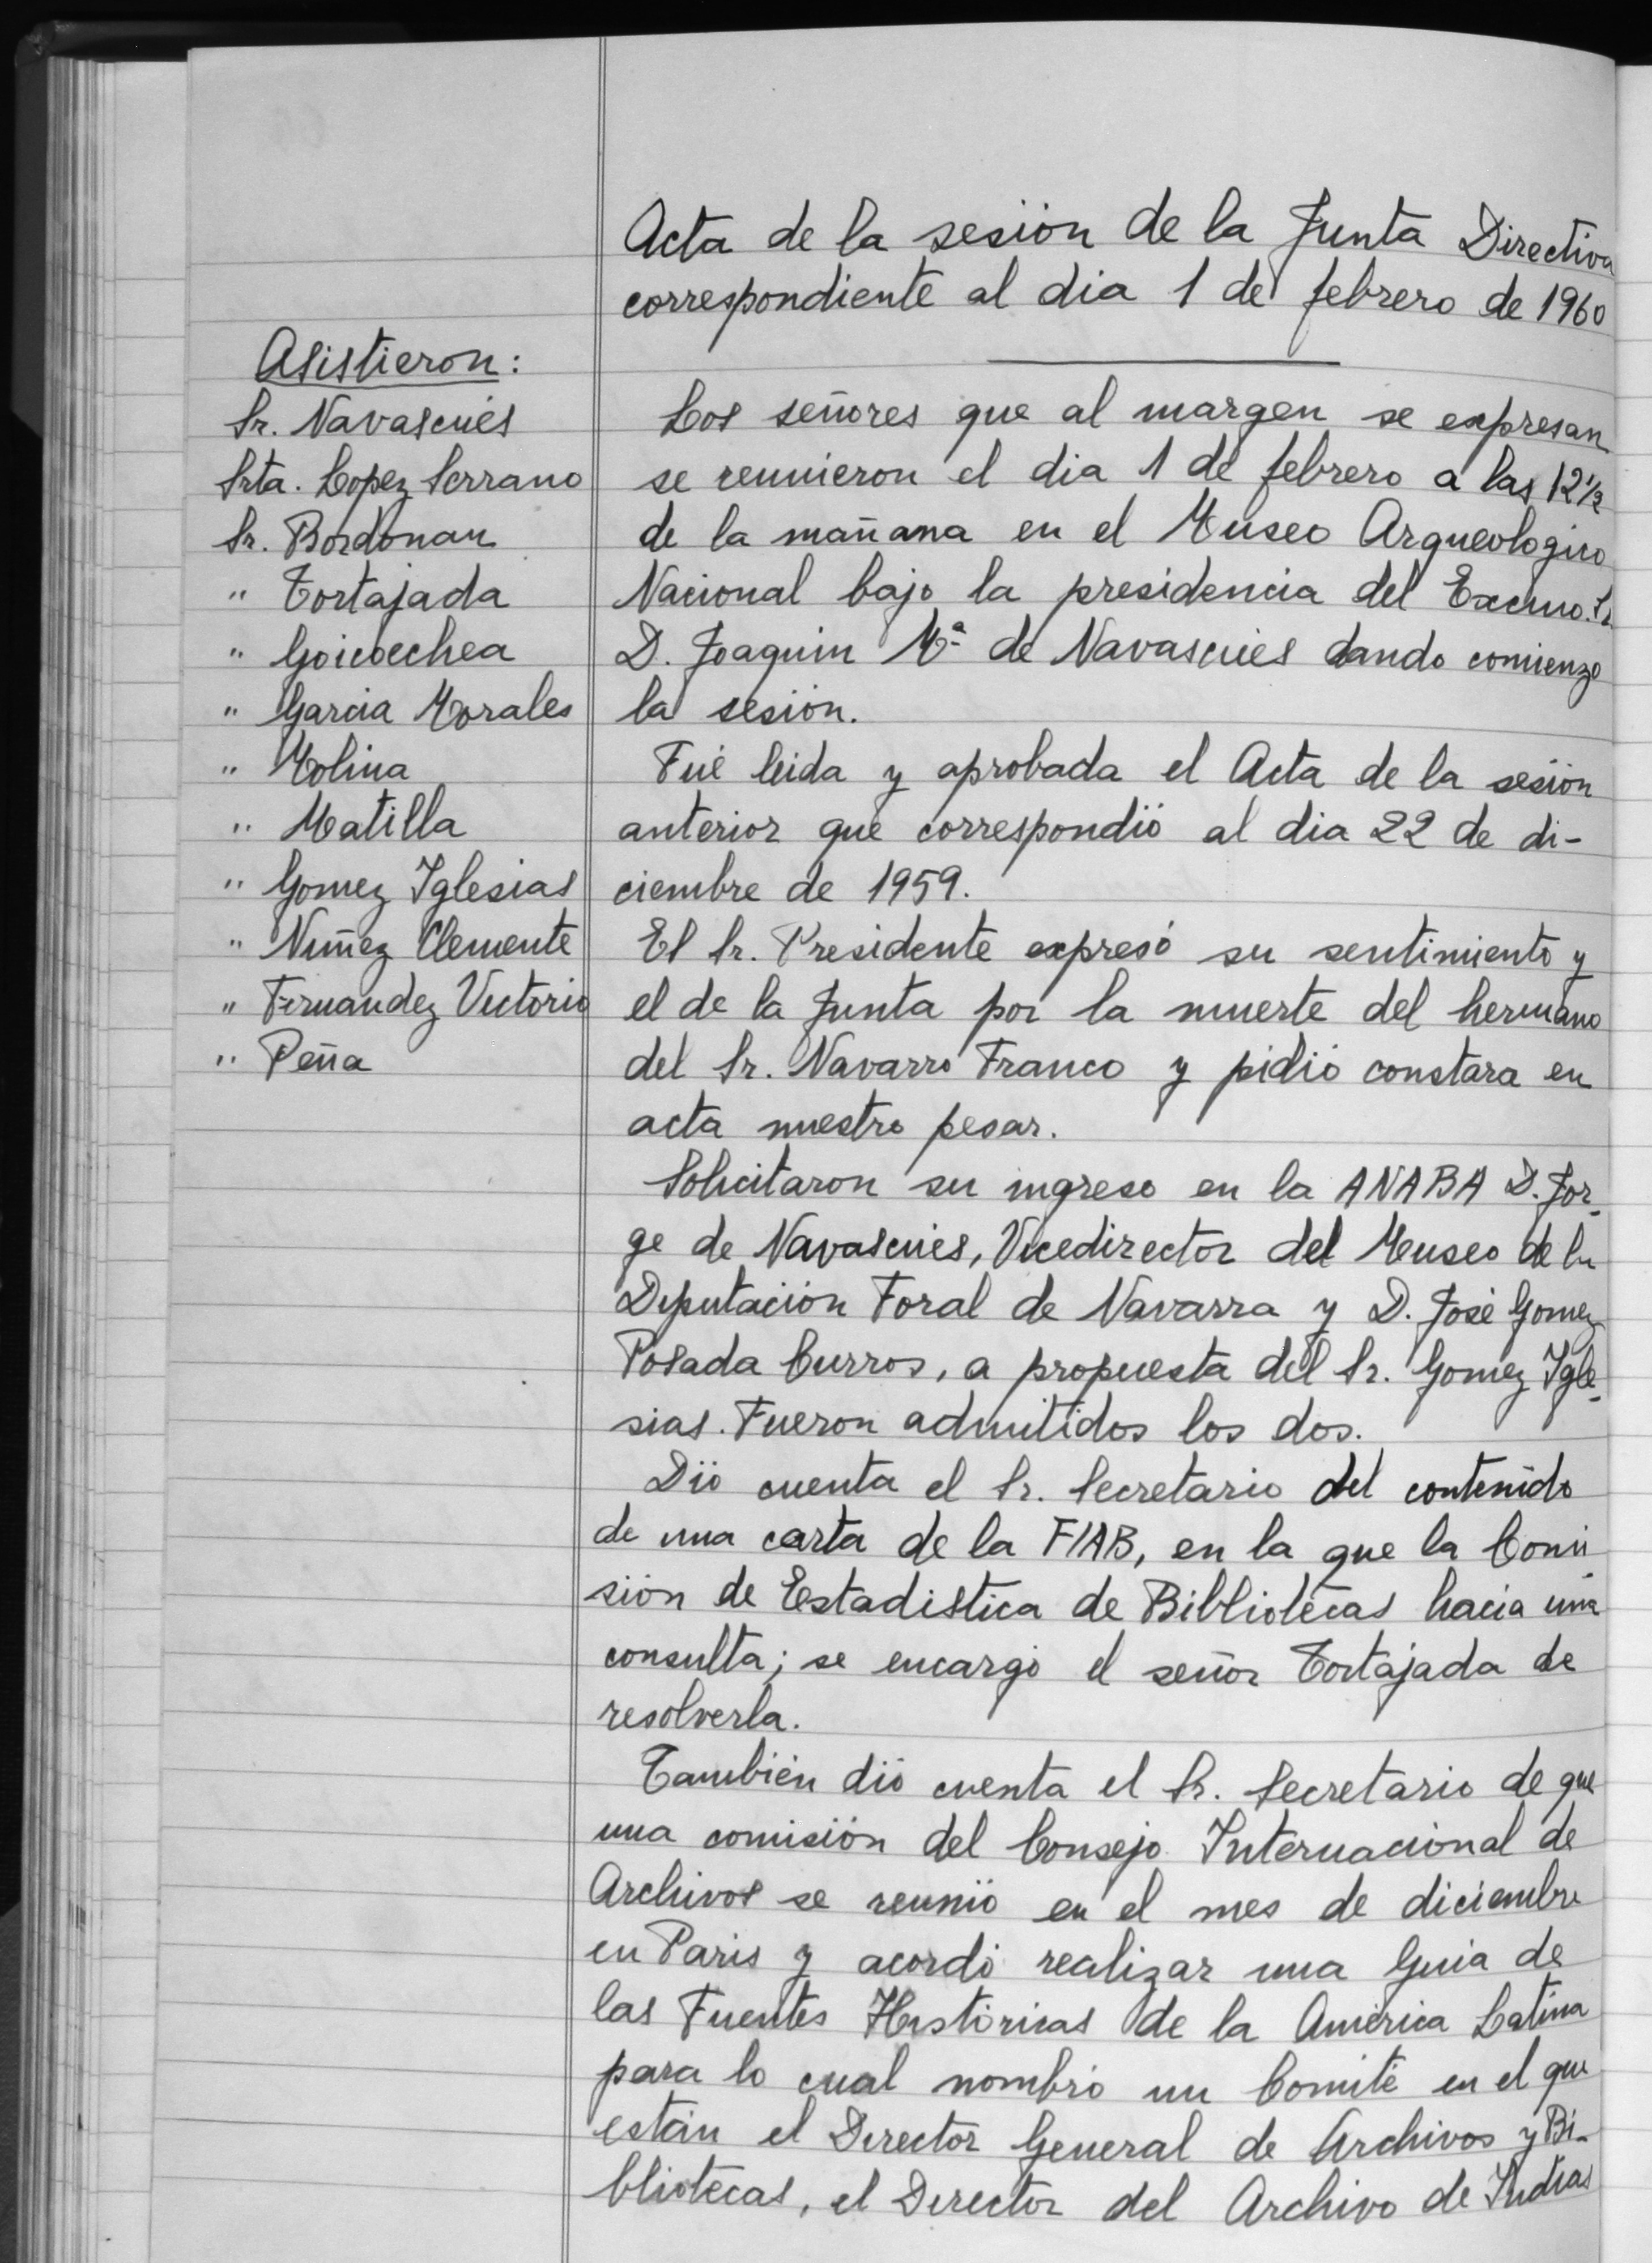 Acta de la sesión de la Junta Directiva
correspondiente al dia 1 de febrero de 1960
Asistieron:
Sr. Navascués
Srta. Lopez Serrano
Sr. Bordonau
" Tortajada
" Goicoechea
" Garcia Morales
" Molina
" Matilla
" Gomez Iglesias
" Nuñez Clemente
" Fernandez Victorio
" Peña
Los señores que al margen se expresan
se reunieron el dia 1 de febrero a las 12 1/2
de la mañana en el Museo Arqueologico
Nacional bajo la presidencia del Excmo. Sr.
D. Joaquin Mª de Navascués dando comienzo
la sesión.
Fué leida y aprobada el Acta de la sesión
anterior que correspondió al dia 22 de di-
ciembre de 1959.
El Sr. Presidente expresó su sentimiento y
el de la Junta por la muerte del hermano
del Sr. Navarro Franco y pidió constara en
acta nuestro pesar.
Solicitaron su ingreso en la ANABA D. Jor-
ge de Navascués, Vicedirector del Museo de la
Diputación Foral de Navarra y D. José Gomez
Posada Curros, a propuesta del Sr. Gomez Igle-
sias. Fueron admitidos los dos.
Dió cuenta el Sr. Secretario del contenido
de una carta de la FIAB, en la que la Comi-
sión de Estadistica de Bibliotecas hacia una
consulta; se encargó el señor Tortajada de
resolverla.
También dió cuenta el Sr. Secretario de que
una comisión del Consejo Internacional de
Archivos se reunió en el mes de diciembre
en Paris y acordó realizar una Guia de
las Fuentes Históricas de la América Latina
para lo cual nombró un Comité en el que
están el Director General de Archivos y Bi-
bliotecas, el Director del Archivo de Indias